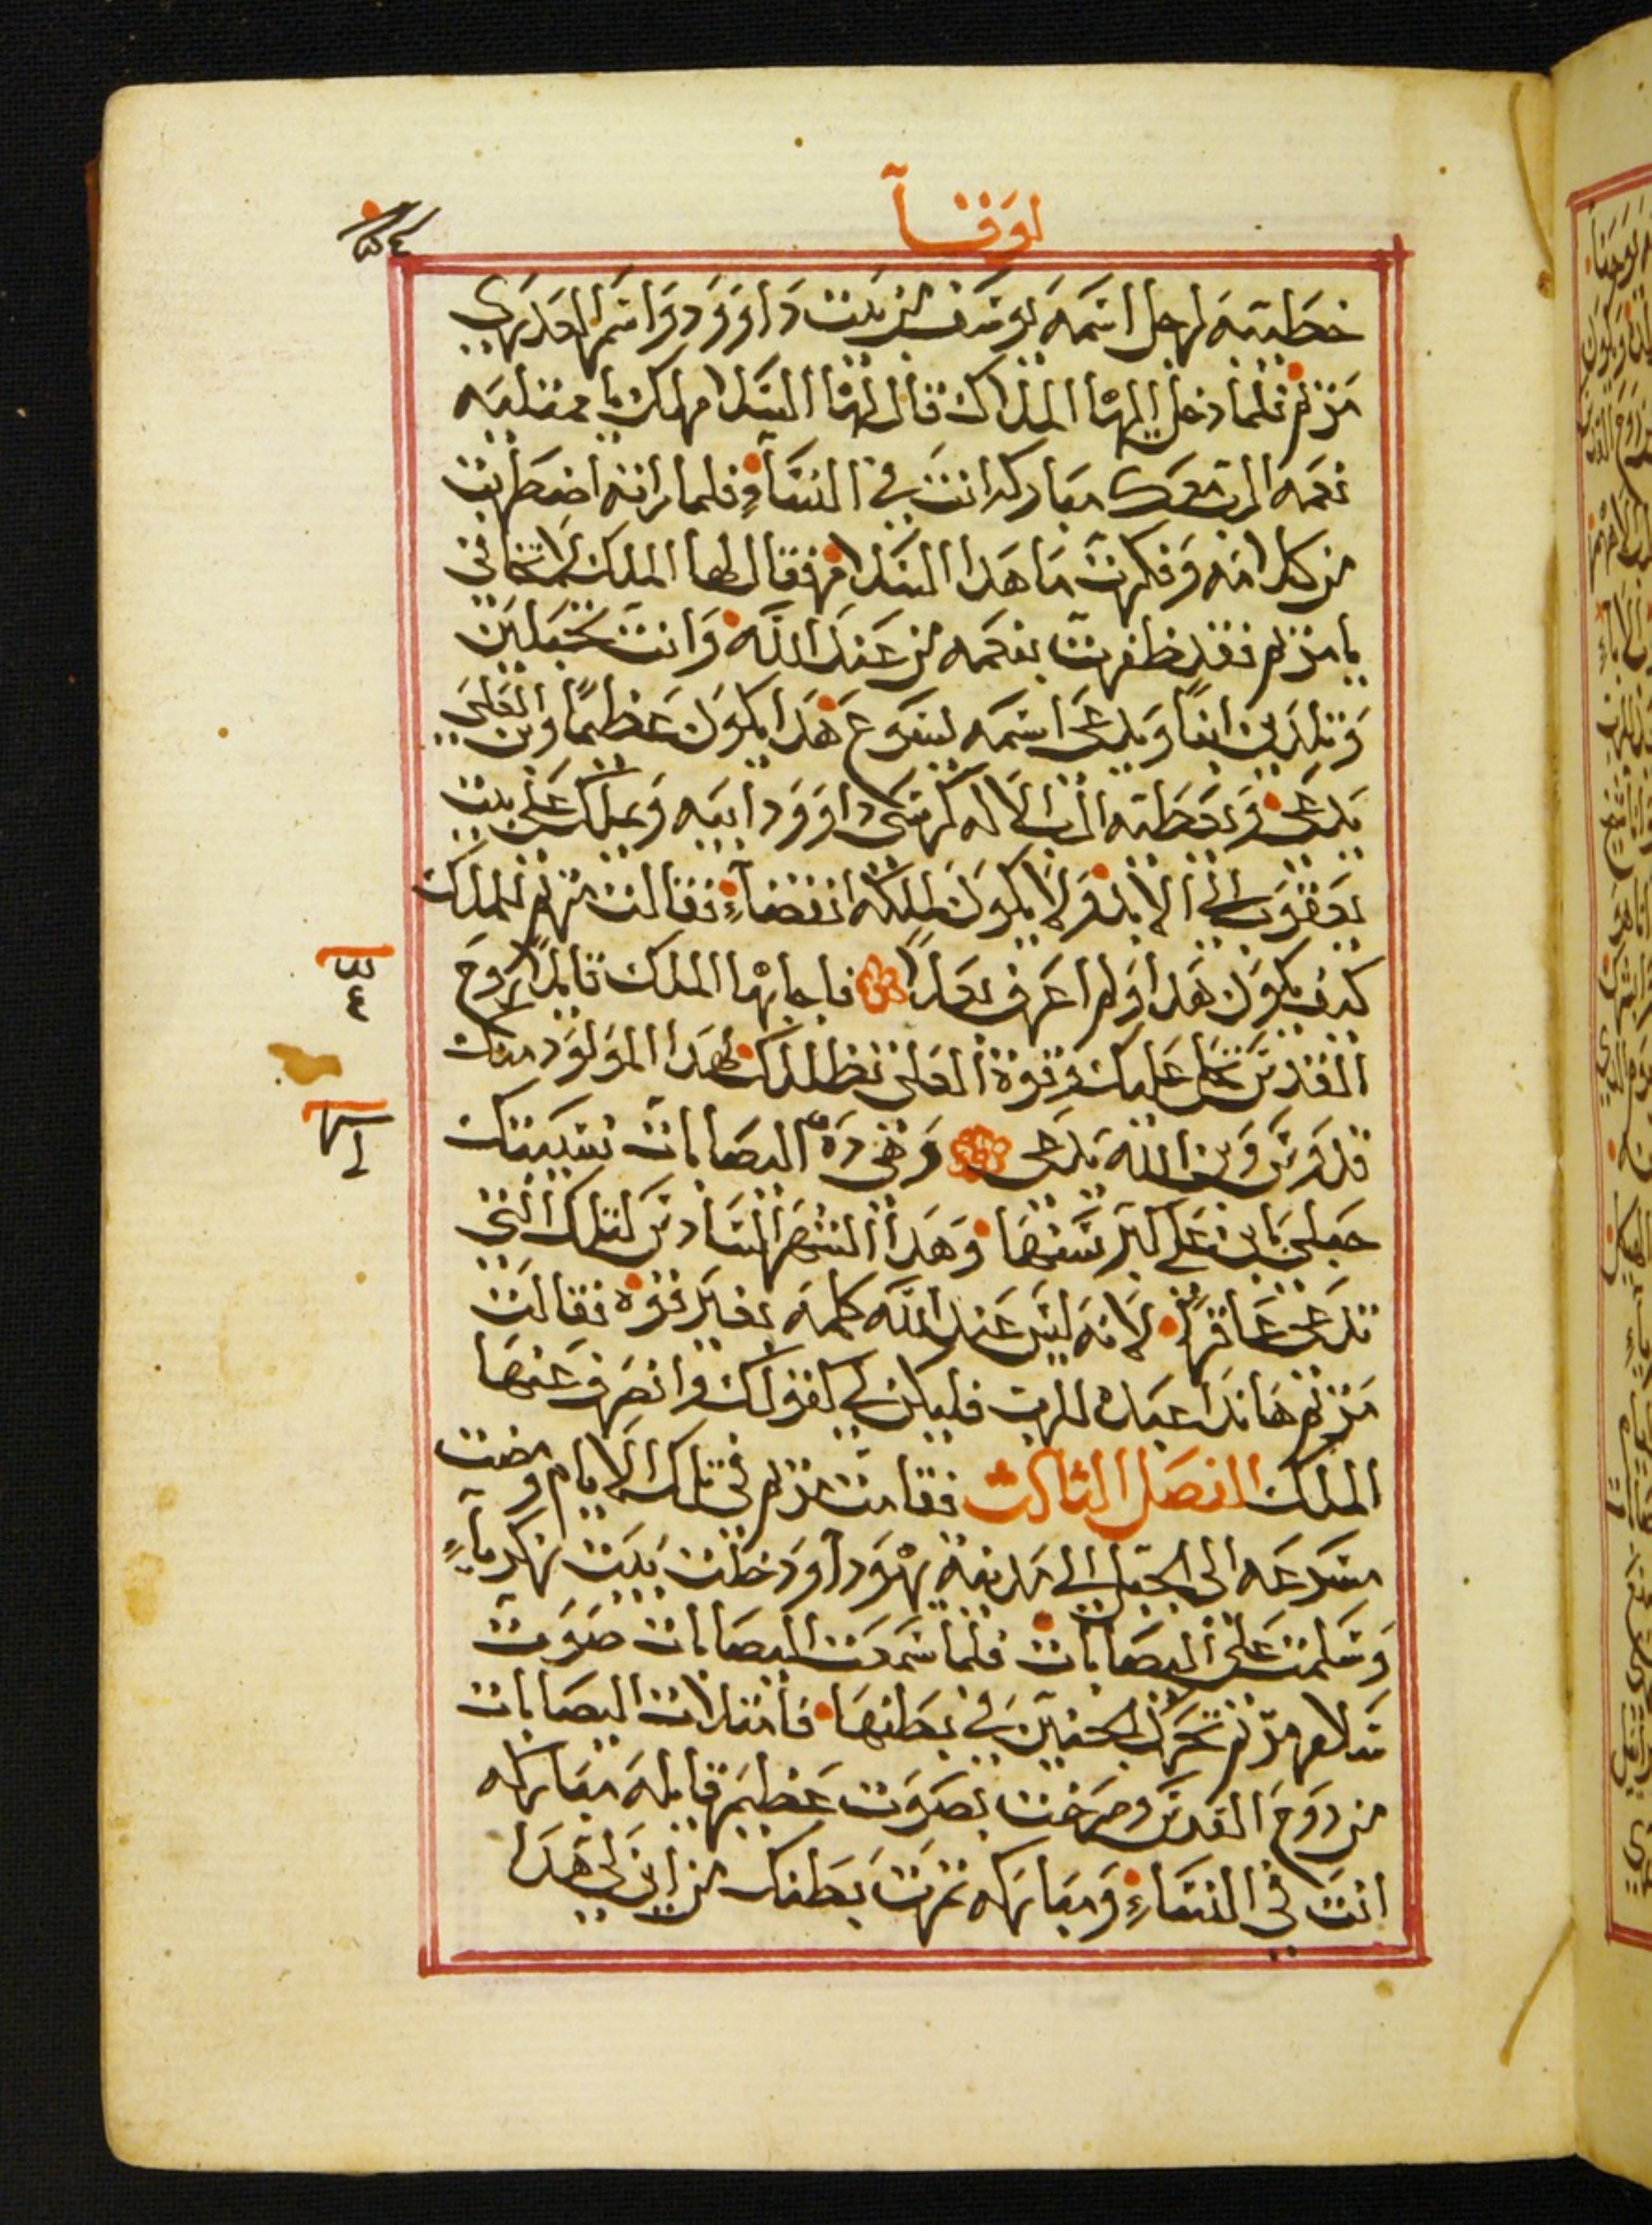 لوقا
خطيبه لرجل اسمه يوسف من بيت داوود واسم العدري
مريم فلما دخل اليها الملاك قال لها السلام لك يا ممتليه
نعمه الرب معك مباركه انت في النساء فلما راته اضطربت
من كلامه وفكرت ما هدا السلام فقال لها الملاك لا تخافي
يا مريم فقد ظفرت بنعمه من عند الله وانت تحبلين
وتلدين ابنا ويدعى اسمه يسوع هدا يكون عظيما وبن العلي
يدعى ويعطيه الرب الاله كرسي داوود ابيه ويملك على بيت
يعقوب الي الابد ولا يكون لملكه انقضاء فقالت مريم للملاك
كيف يكون هدا ولم اعرف بعلا فاجابها الملاك قايلا روح
القدس تحل عليك وقوة العلي تظللك لهدا المولود منك
قدوس وبن الله يدعى وهي ده اليصابات نسيبتك
حبلي بابن علي كبر سنها وهدا الشهر السادس لتلك التي
تدعى عاقرا لانه ليس عند الله كلمه بغير قوه فقالت
مريم هاندا عبدة للرب فليكن لي كقولك وانصرف عنها
الملاك الفصل التالت فقامت مريم في تلك الايام ومضت
مسرعه الى الجبل الي مدينة يهودا ودخلت بيت زكرياء
وسلمت على اليصابات فلما سمعت اليصابات صوت
سلام مريم تحرك الجنين في بطنها فامتلات اليصابات
من روح القدس وصرخت بصوت عظيم قايله مباركه
انت في النساء ومباركه تمرت بطنك من اين لي هدا